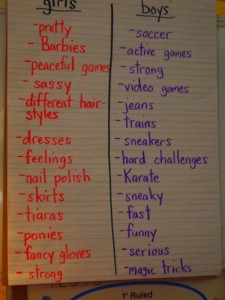 girls
-pretty
- Barbies
-peaceful games
- sassy
-different hair-
styles
-dresses
-feelings
-nail polish
-skirts
-tiaras
-ponies
-fancy gloves
- strong
boys
-soccer
-active games
-strong
-video games
-jeans
-trains
-sneakers
-hard challenges
-Karate
-sneaky
-fast
-funny
-serious
-magic tricks
1" Ruled